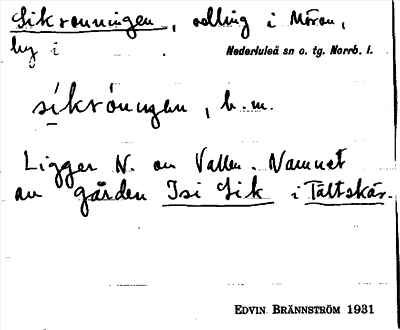 Sikronningen, odling i Möron,
by i Nederluleå sn o. tg. Norrb. l.
síkróningen, b. m.
Ligger N. om Vallen. Namnet
av gården Isi Sik i Tältskär.
EDVIN BRÄNNSTRÖM 1931